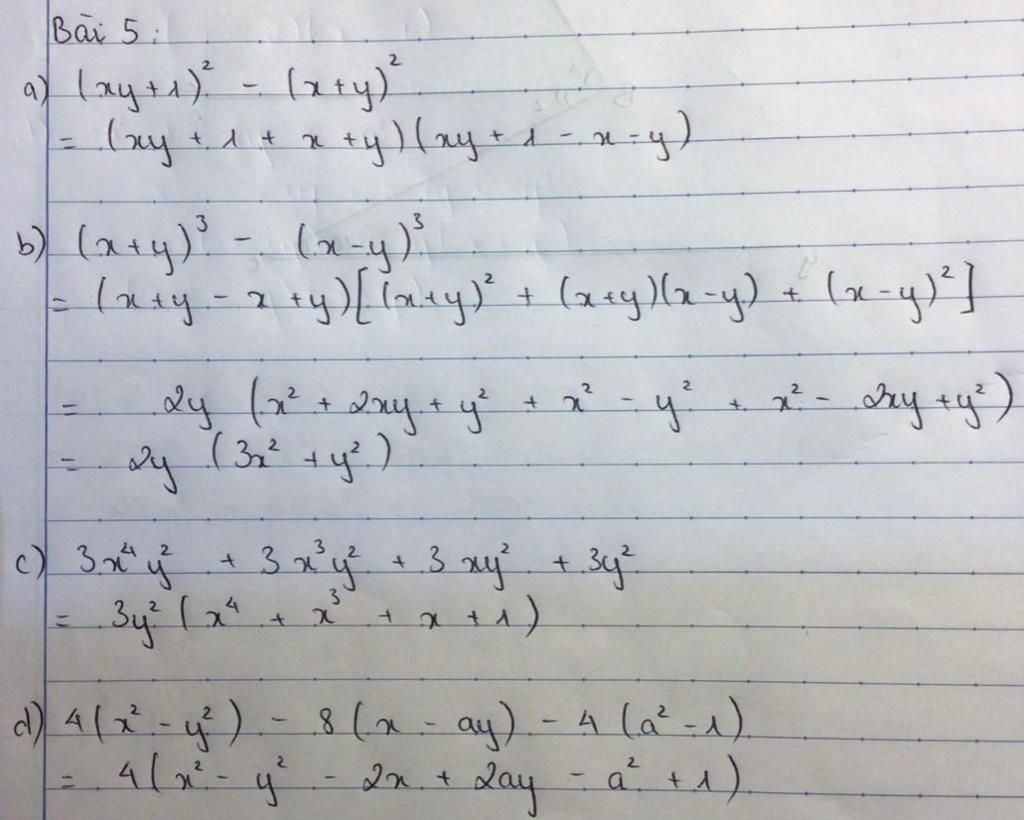 Bài 5:
a) (xy + 1)² - (x + y)²
= (xy + 1 + x + y)(xy + 1 - x - y)
b) (x + y)³ - (x - y)³
= (x + y - x + y)[(x + y)² + (x + y)(x - y) + (x - y)²]
= 2y (x² + 2xy + y² + x² - y² + x² - 2xy + y²)
= 2y (3x² + y²)
c) 3x⁴y² + 3x³y² + 3xy² + 3y²
= 3y² (x⁴ + x³ + x + 1)
d) 4(x² - y²) - 8(x - ay) - 4(a² - 1)
= 4(x² - y² - 2x + 2ay - a² + 1)